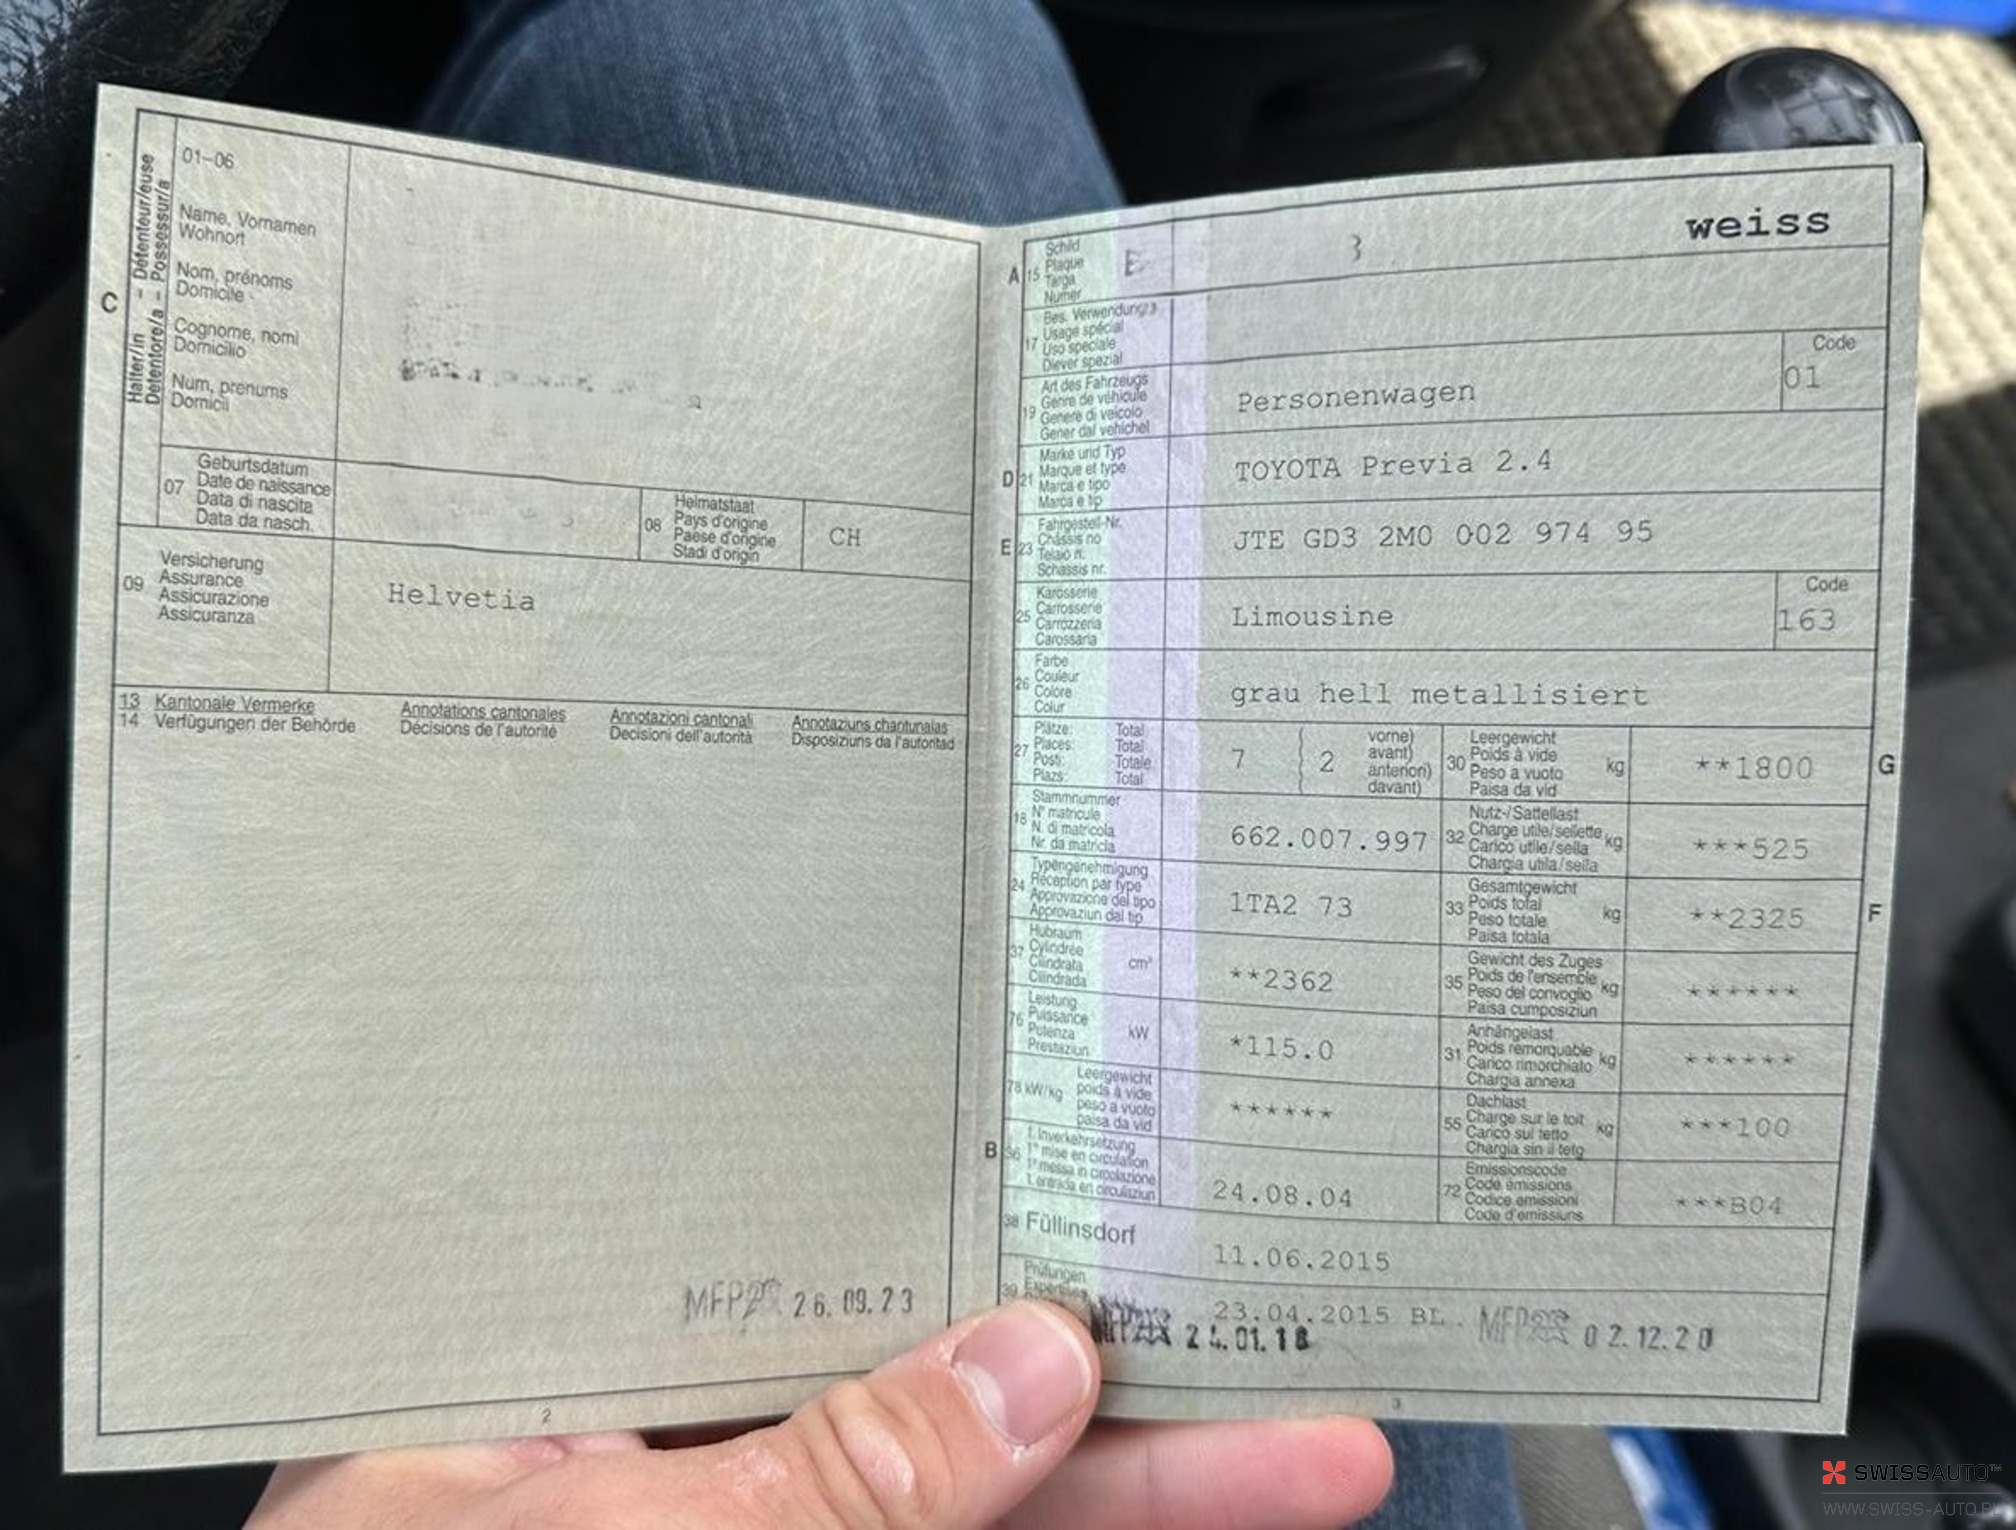 C
Halter/in – Détenteur/euse
Detentore/a – Possessur/a
01–06
Name, Vornamen
Wohnort
Nom, prénoms
Domicile
Cognome, nomi
Domicilio
Num, prenums
Domicil
07
Geburtsdatum
Date de naissance
Data di nascita
Data da nasch.
08
Heimatstaat
Pays d'origine
Paese d'origine
Stadi d'origin
CH
09
Versicherung
Assurance
Assicurazione
Assicuranza
Helvetia
13 Kantonale Vermerke
14 Verfügungen der Behörde
Annotations cantonales
Décisions de l'autorité
Annotazioni cantonali
Decisioni dell'autorità
Annotaziuns chantunalas
Disposiziuns da l'autoritad
26.09.23
2
A 15
Schild
Plaque
Targa
Numer
3
weiss
17
Bes. Verwendung
Usage spécial
Uso speciale
Diever spezial
19
Art des Fahrzeugs
Genre de véhicule
Genere di veicolo
Gener dal vehichel
Personenwagen
Code
01
D 21
Marke und Typ
Marque et type
Marca e tipo
Marca e tip
TOYOTA Previa 2.4
E 23
Fahrgestell-Nr.
Châssis no
Telaio n.
Schassis nr.
JTE GD3 2M0 002 974 95
25
Karosserie
Carrosserie
Carrozzeria
Carossaria
Limousine
Code
163
26
Farbe
Couleur
Colore
Colur
grau hell metallisiert
27
Plätze: Total
Places: Total
Posti: Totale
Plazs: Total
7
2
vorne)
avant)
anteriori)
davant)
30
Leergewicht
Poids à vide
Peso a vuoto
Paisa da vid
kg
**1800
G
18
Stammnummer
N° matricule
N. di matricola
Nr. da matricla
662.007.997
32
Nutz-/Sattellast
Charge utile/sellette
Carico utile/sella
Chargia utila/sella
kg
***525
24
Typengenehmigung
Réception par type
Approvazione del tipo
Approvaziun dal tip
1TA2 73
33
Gesamtgewicht
Poids total
Peso totale
Paisa totala
kg
**2325
F
37
Hubraum
Cylindrée
Cilindrata
Cilindrada
cm³
**2362
35
Gewicht des Zuges
Poids de l'ensemble
Peso del convoglio
Paisa cumposiziun
kg
******
76
Leistung
Puissance
Potenza
Prestaziun
kW
*115.0
31
Anhängelast
Poids remorquable
Carico rimorchiato
Chargia annexa
kg
******
78 kW/kg
Leergewicht
poids à vide
peso a vuoto
paisa da vid
******
55
Dachlast
Charge sur le toit
Carico sul tetto
Chargia sin il tetg
kg
***100
B 36
1. Inverkehrsetzung
1re mise en circulation
1a messa in circolazione
1. entrada en circulaziun
24.08.04
72
Emissionscode
Code émissions
Codice emissioni
Code d'emissiuns
***B04
38 Füllinsdorf
11.06.2015
39
Prüfungen
23.04.2015 BL.
02.12.20
3
SWISSAUTO™
WWW.SWISS-AUTO.PL